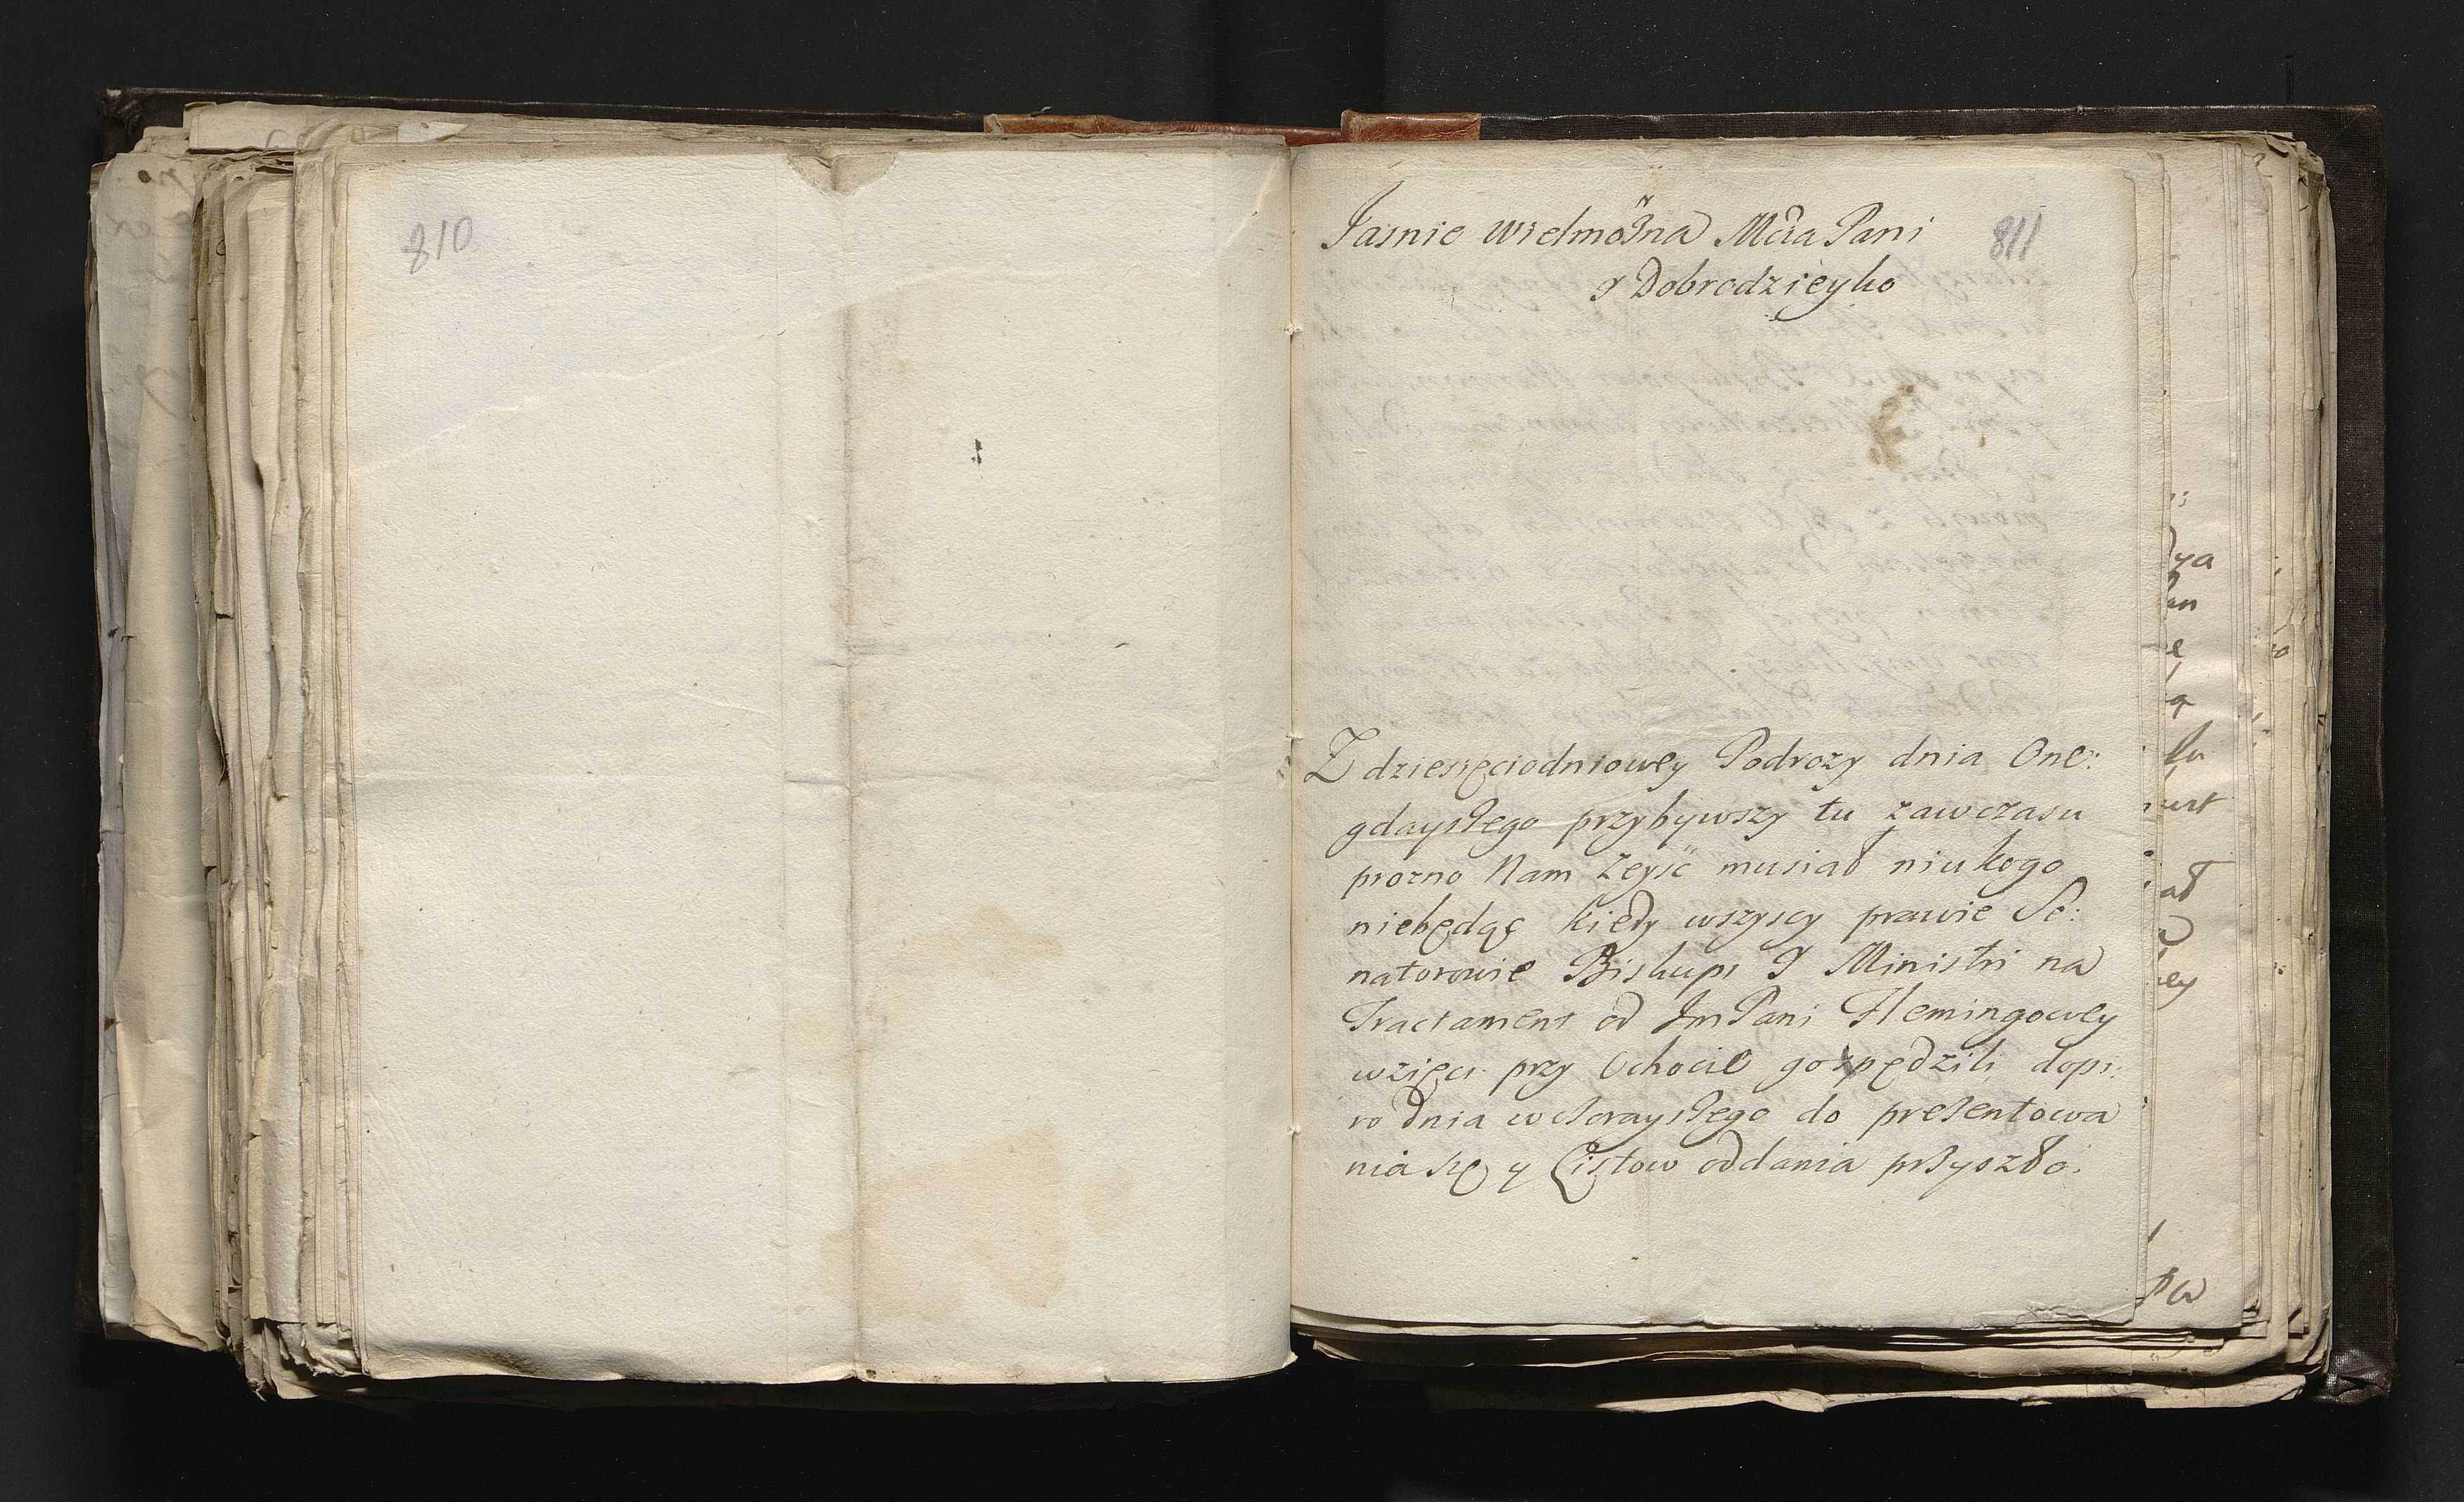 810
Jasnie Wielmożna Mcia Pani
811
y Dobrodzieyko
Z dziesięciodniowey Podrozy dnia One:
gdayszego przybywszy tu zawczasu
prozno Nam zeysć musiał niukogo
niebędąc kiedy wszyscy prawie Se:
natorowie Biskupi I Ministri na
Tractament od JmPani Flemingowey
wzięci przy Ochocie go pędzili dopi:
ro dnia wczorayszego do prezentowa
nia się y Listow oddania przyszło.